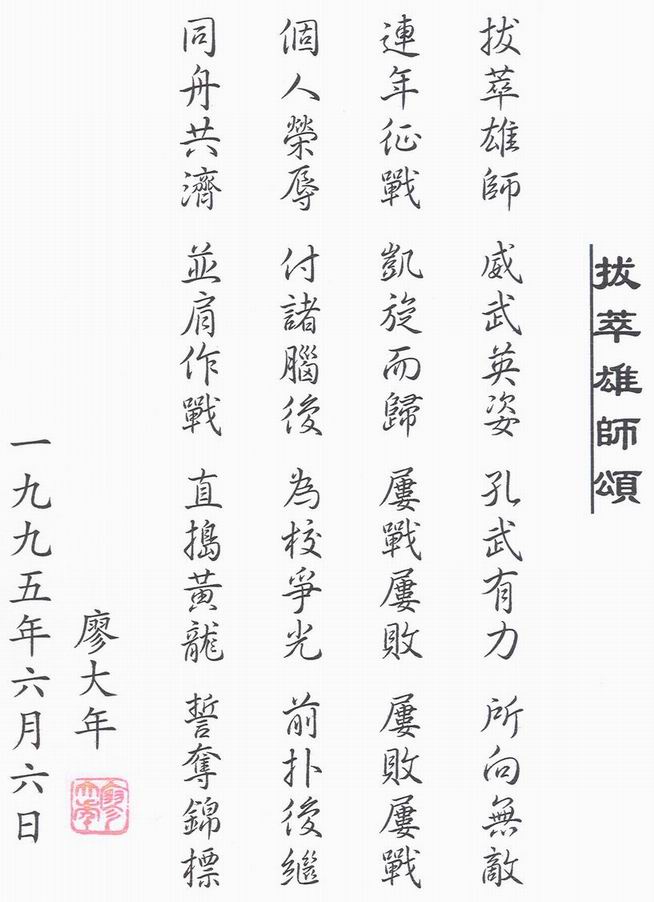 拔萃雄師頌
拔萃雄師 威武英姿 孔武有力 所向無敵
連年征戰 凱旋而歸 屢戰屢敗 屢敗屢戰
個人榮辱 付諸腦後 為校爭光 前扑後繼
同舟共濟 並肩作戰 直搗黃龍 誓奪錦標
廖大年
一九九五年六月六日